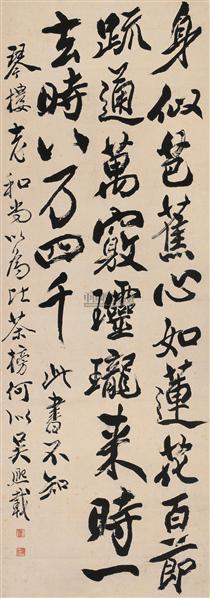 身似芭蕉心如蓮花百節
疏通萬竅玲瓏来時一
去時八万四千 此書不知
琴樓老和尚以為比茶榜何似吳熙載